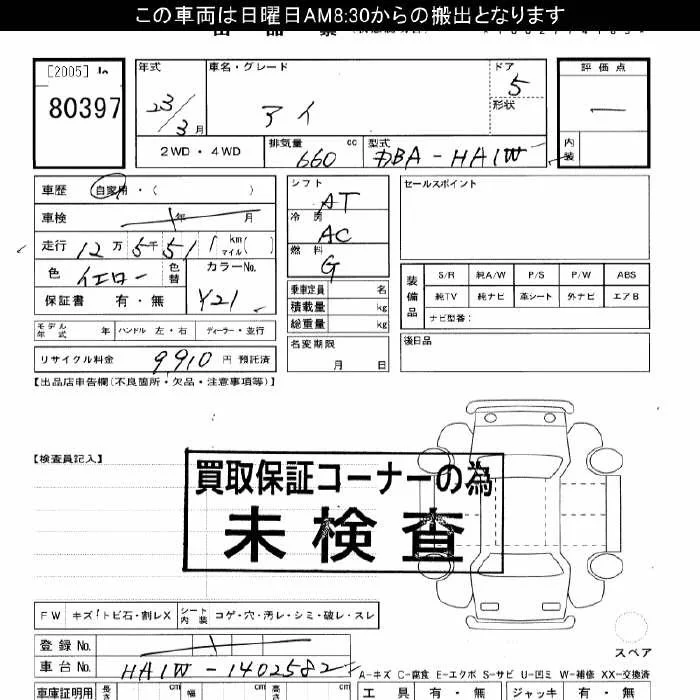 この車両は日曜日AM8:30からの搬出となります
[2005]
80397
年式 車名・グレード ドア 評価点
23/3月 アイ 5 形状 一
2WD・4WD 排気量 660 cc 型式 DBA-HA1W 内装
車歴 自家用・( )
車検 年 月
走行 12万5千51 km マイル( )
色 イエロー 色替 カラーNo. Y21
保証書 有・無
モデル年式 年 ハンドル 左・右 ディーラー・並行
リサイクル料金 9910 円 預託済
シフト AT
冷房 AC
燃料 G
乗車定員 名
積載量 kg
総重量 kg
名変期限
月 日
セールスポイント
装備品 S/R 純A/W P/S P/W ABS
純TV 純ナビ 革シート 外ナビ エアB
ナビ型番:
後日品
【出品店申告欄(不良箇所・欠品・注意事項等)】
【検査員記入】
買取保証コーナーの為
未検査
FW キズ!トビ石・割レX シート内装 コゲ・穴・汚レ・シミ・破レ・スレ
スペア
登録No.
車台No. HA1W-1402582
A-キズ C-腐食 E-エクボ S-サビ U-凹ミ W-補修 XX-交換済
車庫証明用 長さ cm 幅 cm 高 cm 工具 有・無 ジャッキ 有・無